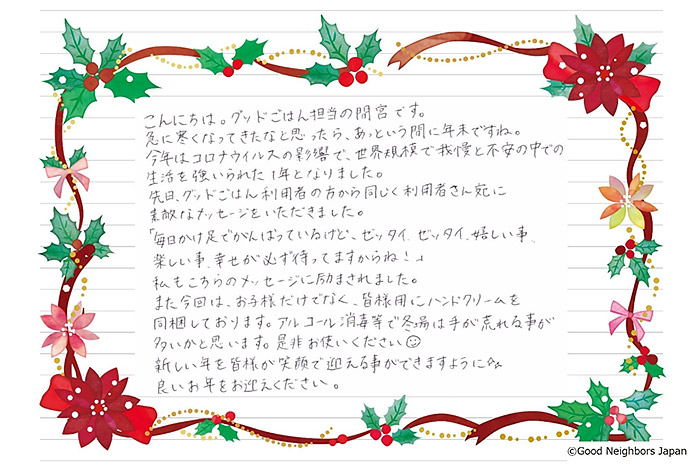 こんにちは。グッドごはん担当の間宮です。
急に寒くなってきたなと思ったら、あっという間に年末ですね。
今年はコロナウイルスの影響で、世界規模で我慢と不安の中での
生活を強いられた1年となりました。
先日、グッドごはん利用者の方から同じく利用者さん宛に
素敵なメッセージをいただきました。
「毎日かけ足でがんばっているけど、ゼッタイ、ゼッタイ、嬉しい事、
楽しい事、幸せが必ず待ってますからね！」
私もこちらのメッセージに励まされました。
また今回は、お子様だけでなく、皆様用にハンドクリームを
同梱しております。アルコール消毒等で冬場は手が荒れる事が
多いかと思います。是非お使いください☺
新しい年を皆様が笑顔で迎える事ができますように
良いお年をお迎えください。
©Good Neighbors Japan